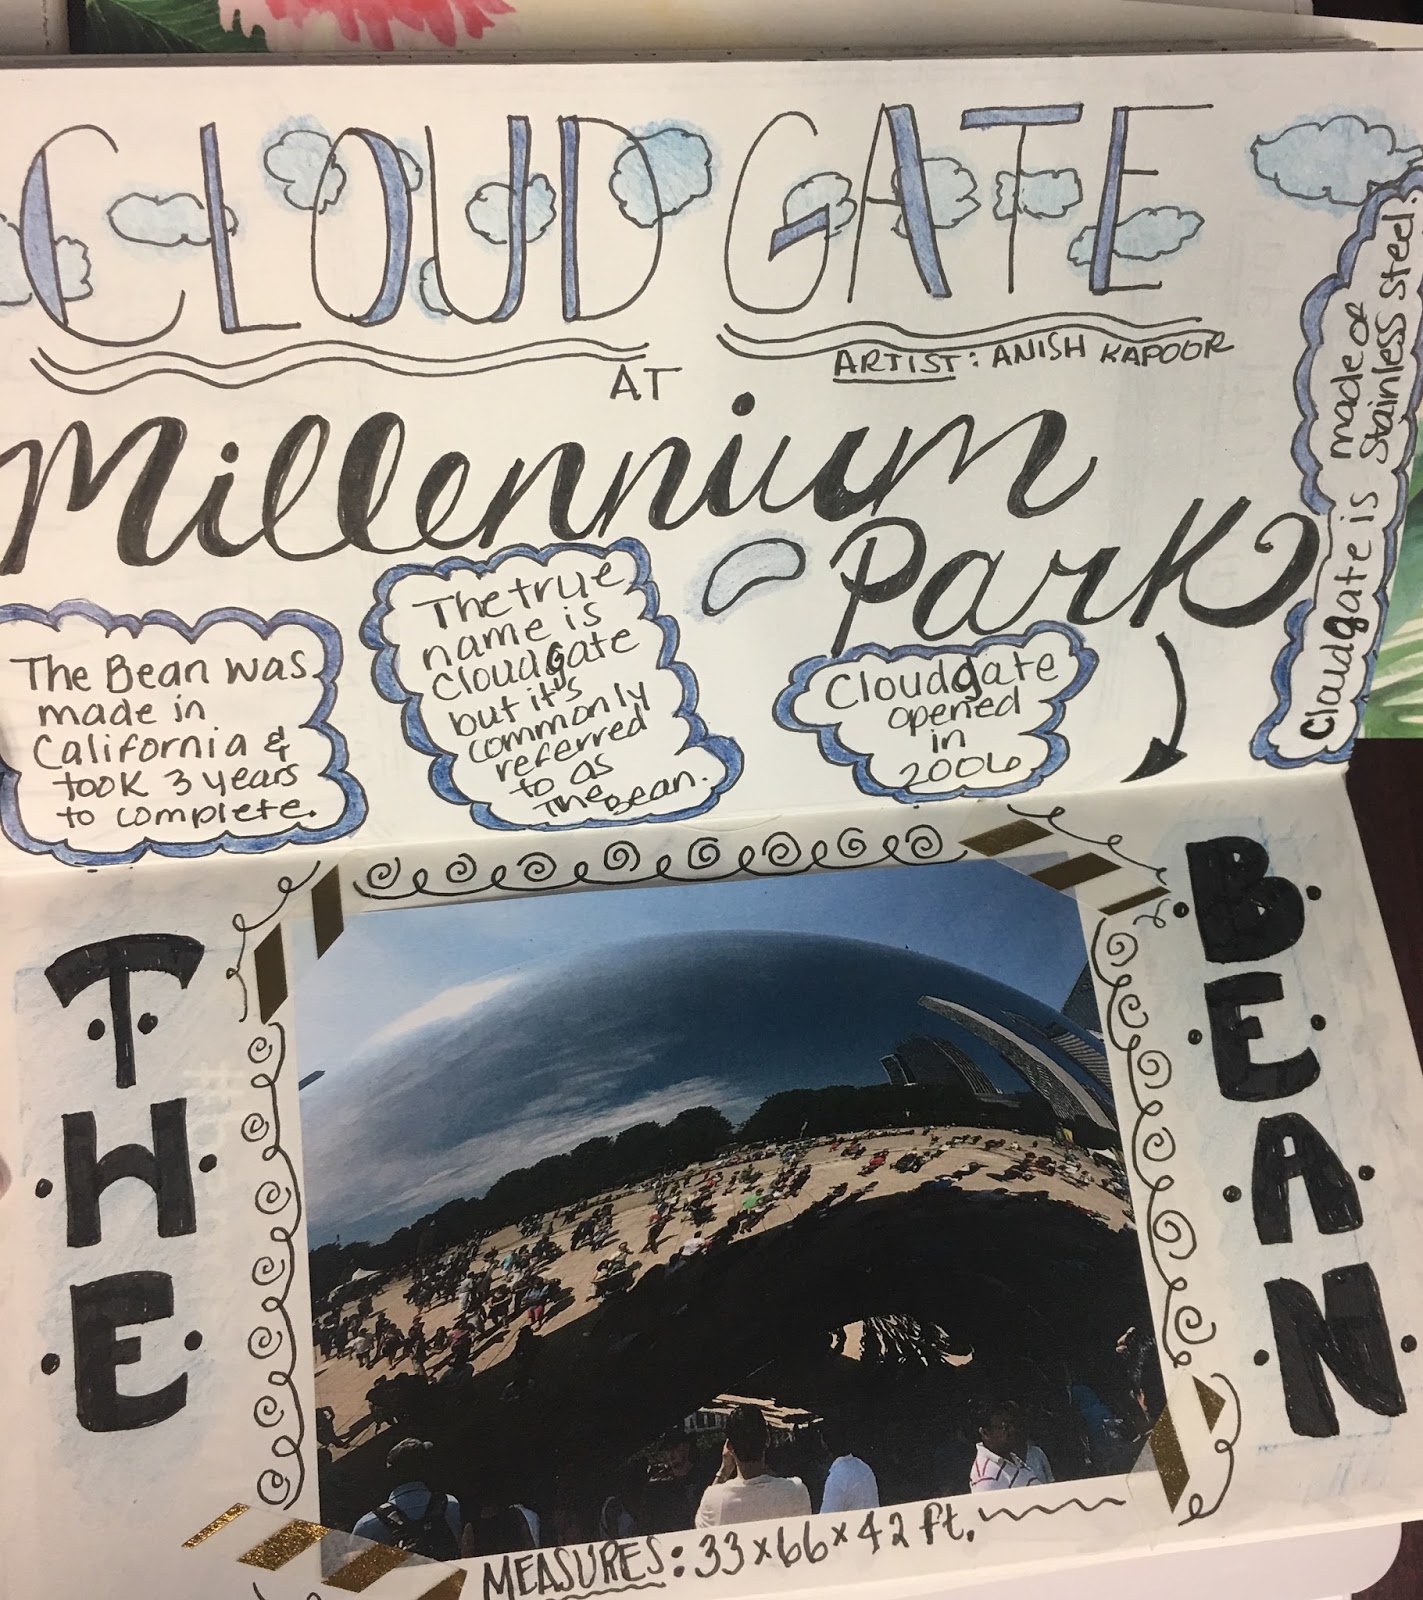 CLOUD GATE
ARTIST: ANISH KAPOOR
AT
Millennium
Park
Cloudgate is made of
stainless steel.
The Bean was
made in
California &
took 3 years
to complete.
The true
name is
cloudgate
but it's
commonly
referred
to as
The Bean.
Cloudgate
opened
in
2006
THE
BEAN
MEASURES: 33x66x42 ft.